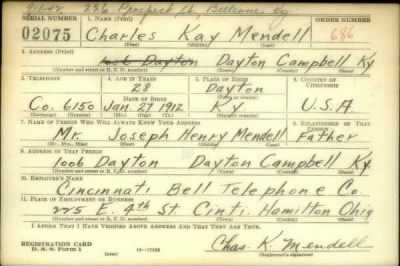 226 Prospect St. Bellevue Ky
SERIAL NUMBER 1. NAME (Print) ORDER NUMBER
02075 Charles Kay Mendell 686
(First) (Middle) (Last)
2. ADDRESS (Print)
1006 Dayton Dayton Campbell Ky.
(Number and street or R. F. D. number) (Town) (County) (State)
3. TELEPHONE 4. AGE IN YEARS 5. PLACE OF BIRTH 6. COUNTRY OF CITIZENSHIP
28 Dayton
DATE OF BIRTH (Town or county)
Co. 6150 Jan. 27 1912 Ky. U.S.A.
(Exchange) (Number) (Mo.) (Day) (Yr.) (State or country)
7. NAME OF PERSON WHO WILL ALWAYS KNOW YOUR ADDRESS 8. RELATIONSHIP OF THAT PERSON
Mr. Joseph Henry Mendell Father
(Mr., Mrs., Miss) (First) (Middle) (Last)
9. ADDRESS OF THAT PERSON
1006 Dayton Dayton Campbell Ky.
(Number and street or R. F. D. number) (Town) (County) (State)
10. EMPLOYER'S NAME
Cincinnati Bell Telephone Co.
11. PLACE OF EMPLOYMENT OR BUSINESS
225 E. 4th St. Cinti. Hamilton Ohio
(Number and street or R. F. D. number) (Town) (County) (State)
I AFFIRM THAT I HAVE VERIFIED ABOVE ANSWERS AND THAT THEY ARE TRUE.
REGISTRATION CARD
D. S. S. Form 1 Chas. K. Mendell
(over) (Registrant's signature)